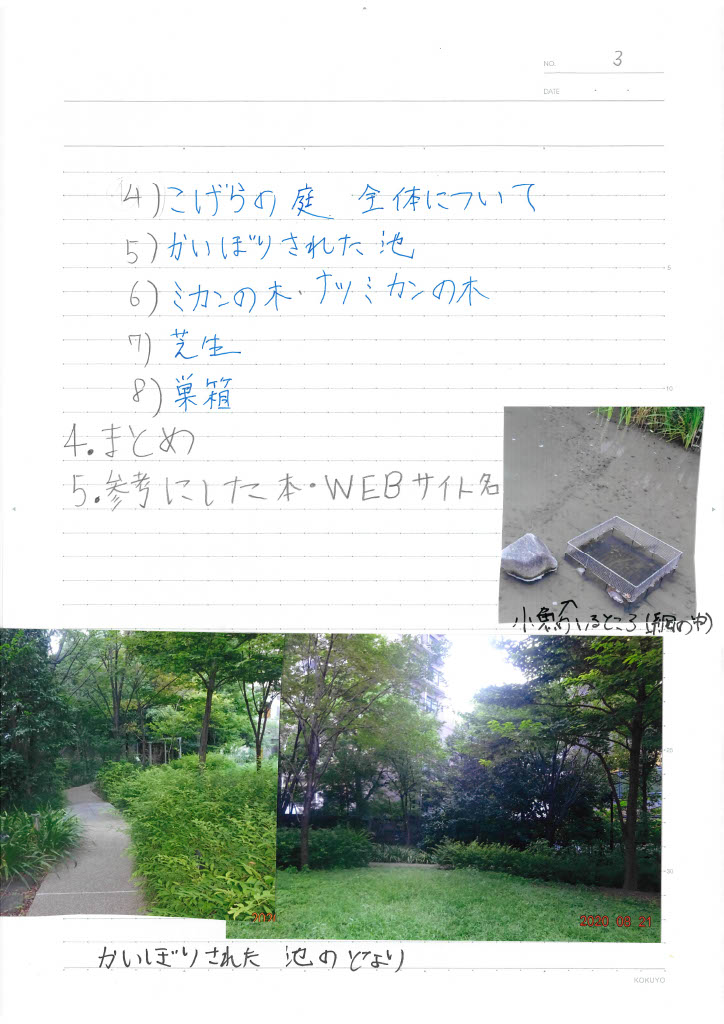 NO. 3
DATE ・ ・
4)こげらの庭 全体について
5)かいぼりされた池
6)ミカンの木・ナツミカンの木
7)芝生
8)巣箱
4.まとめ
5.参考にした本・WEBサイト名
5
10
小魚がいるところ(網の中)
25
30
2020 08 21
かいぼりされた 池のとなり
KOKUYO